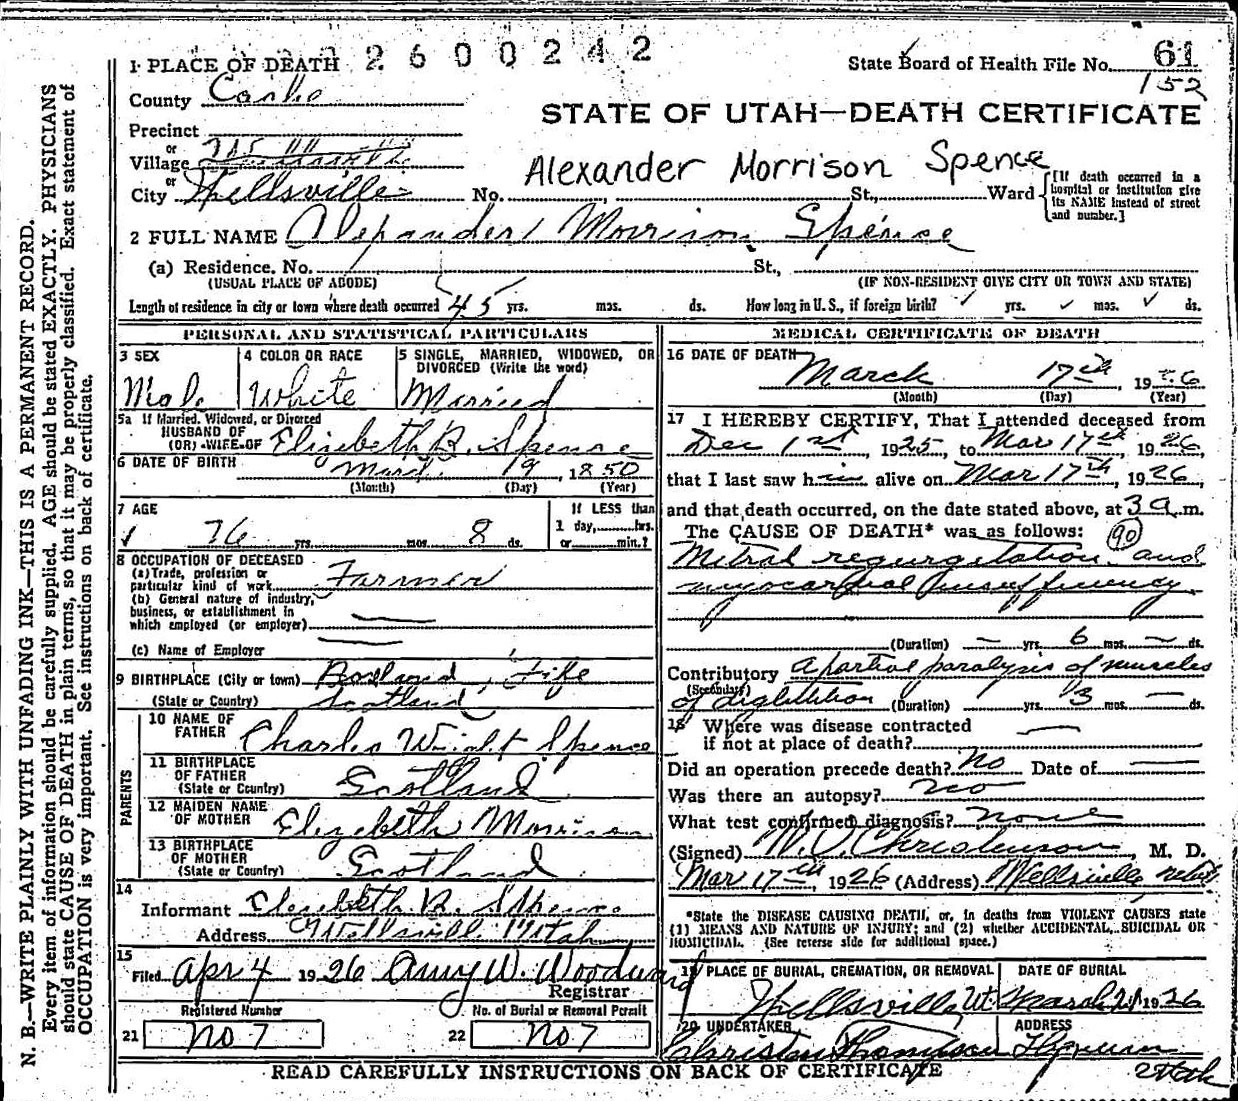 1 PLACE OF DEATH 2600242
State Board of Health File No. 61
152
County Cache
STATE OF UTAH—DEATH CERTIFICATE
Precinct
or
Village Wellsville
Alexander Morrison Spence
or
City Wellsville No. St., Ward [If death occurred in a hospital or institution give its NAME instead of street and number.]
2 FULL NAME Alexander Morrison Spence
(a) Residence. No. St.,
(USUAL PLACE OF ABODE) (IF NON-RESIDENT GIVE CITY OR TOWN AND STATE)
Length of residence in city or town where death occurred 45 yrs. mos. ds. How long in U. S., if foreign birth? ✓ yrs. ✓ mos. ✓ ds.
PERSONAL AND STATISTICAL PARTICULARS
3 SEX 4 COLOR OR RACE 5 SINGLE, MARRIED, WIDOWED, OR
DIVORCED (Write the word)
White Married
5a If Married, Widowed, or Divorced
HUSBAND OF
(OR) WIFE OF Elizabeth R. Spence
6 DATE OF BIRTH March 19, 1850
(Month) (Day) (Year)
7 AGE If LESS than
1 day, hrs.
76 yrs. mos. 8 ds. or min.?
8 OCCUPATION OF DECEASED
(a) Trade, profession or
particular kind of work Farmer
(b) General nature of industry,
business, or establishment in
which employed (or employer)
(c) Name of Employer
9 BIRTHPLACE (City or town) Fife
(State or Country) Scotland
PARENTS
10 NAME OF
FATHER Charles Wright Spence
11 BIRTHPLACE
OF FATHER
(State or Country) Scotland
12 MAIDEN NAME
OF MOTHER Elizabeth Morrison
13 BIRTHPLACE
OF MOTHER
(State or Country) Scotland
14
Informant Elizabeth R. Spence
Address Wellsville Utah
15
Filed Apr 4 1926 Amy W. Woodward
Registrar
Registered Number No. of Burial or Removal Permit
21 No 7 22 No 7
MEDICAL CERTIFICATE OF DEATH
16 DATE OF DEATH
March 17th, 1926
(Month) (Day) (Year)
17 I HEREBY CERTIFY, That I attended deceased from
Dec 1st, 1925, to Mar 17th, 1926,
that I last saw him alive on Mar 17th, 1926,
and that death occurred, on the date stated above, at 3 a.m.
The CAUSE OF DEATH* was as follows: 90
Mitral regurgitation and
myocardial insufficiency
(Duration) — yrs. 6 mos. — ds.
Contributory a partial paralysis of muscles
(Secondary)
of deglutition (Duration) yrs. 3 mos. — ds.
18 Where was disease contracted
if not at place of death? —
Did an operation precede death? No Date of —
Was there an autopsy? no
What test confirmed diagnosis? none
(Signed) Christenson, M. D.
Mar 17th, 1926 (Address) Wellsville, Utah
*State the DISEASE CAUSING DEATH, or, in deaths from VIOLENT CAUSES state
(1) MEANS AND NATURE OF INJURY; and (2) whether ACCIDENTAL, SUICIDAL OR
HOMICIDAL. (See reverse side for additional space.)
19 PLACE OF BURIAL, CREMATION, OR REMOVAL DATE OF BURIAL
Wellsville, Ut. March 21, 1926
20 UNDERTAKER ADDRESS
Utah
READ CAREFULLY INSTRUCTIONS ON BACK OF CERTIFICATE
N. B.—WRITE PLAINLY WITH UNFADING INK—THIS IS A PERMANENT RECORD.
Every item of information should be carefully supplied. AGE should be stated EXACTLY. PHYSICIANS
should state CAUSE OF DEATH in plain terms, so that it may be properly classified. Exact statement of
OCCUPATION is very important. See instructions on back of certificate.